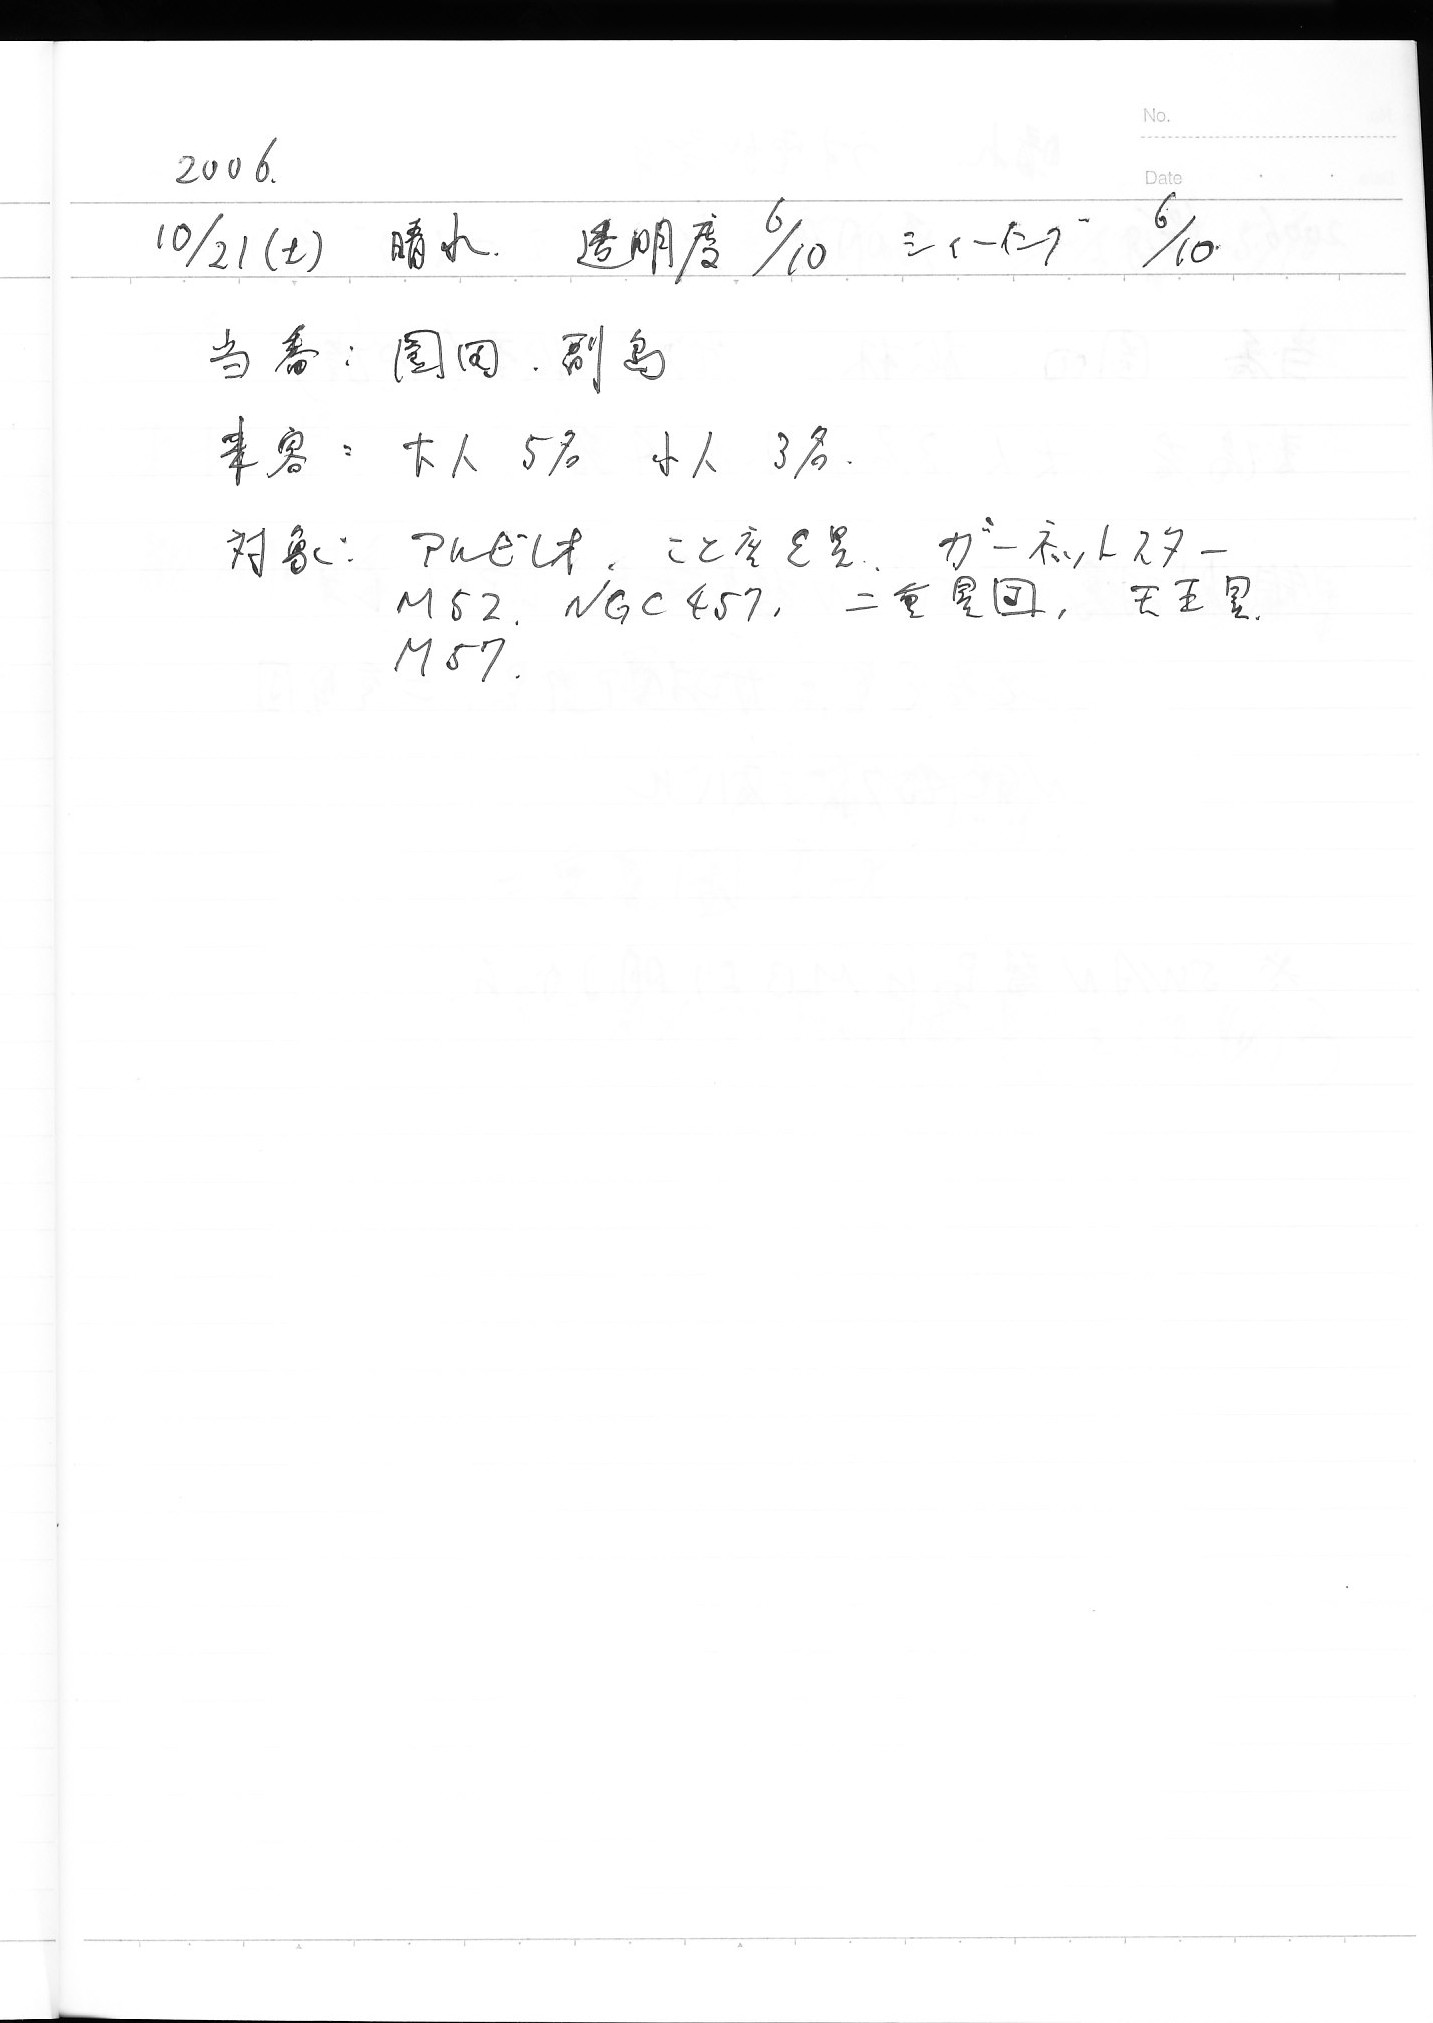 No.
Date
2006.
10/21(土) 晴れ. 透明度 6/10 シィーイング 6/10.
当番: 園田. 副島
来客: 大人 5名 小人 3名.
対象: アルビレオ. こと座ε星. ガーネットスター
M52. NGC457. 二重星団, 天王星.
M57.